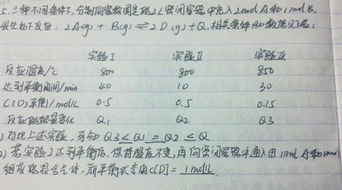 5. 三种不同条件下,分别向容积固定的2L密闭容器中充入2mol A和1mol B,
发生如下反应: 2A(g) + B(g) ⇌ 2D(g)+Q, 相关条件和数据见下表:
实验Ⅰ 实验Ⅱ 实验Ⅲ
反应温度/℃ 800 800 850
达到平衡时间/min 40 10 30
C(D)平衡/mol/L 0.5 0.5 0.15
反应的能量变化 Q1 Q2 Q3
1) 对比上述实验, 可知 Q3<Q1=Q2<Q
2) 若实验Ⅰ达到平衡后, 保持温度不变, 再向密闭容器中通入 1mol A和1mol
组成的混合气体, 新平衡式 C[D]= 1mol/L